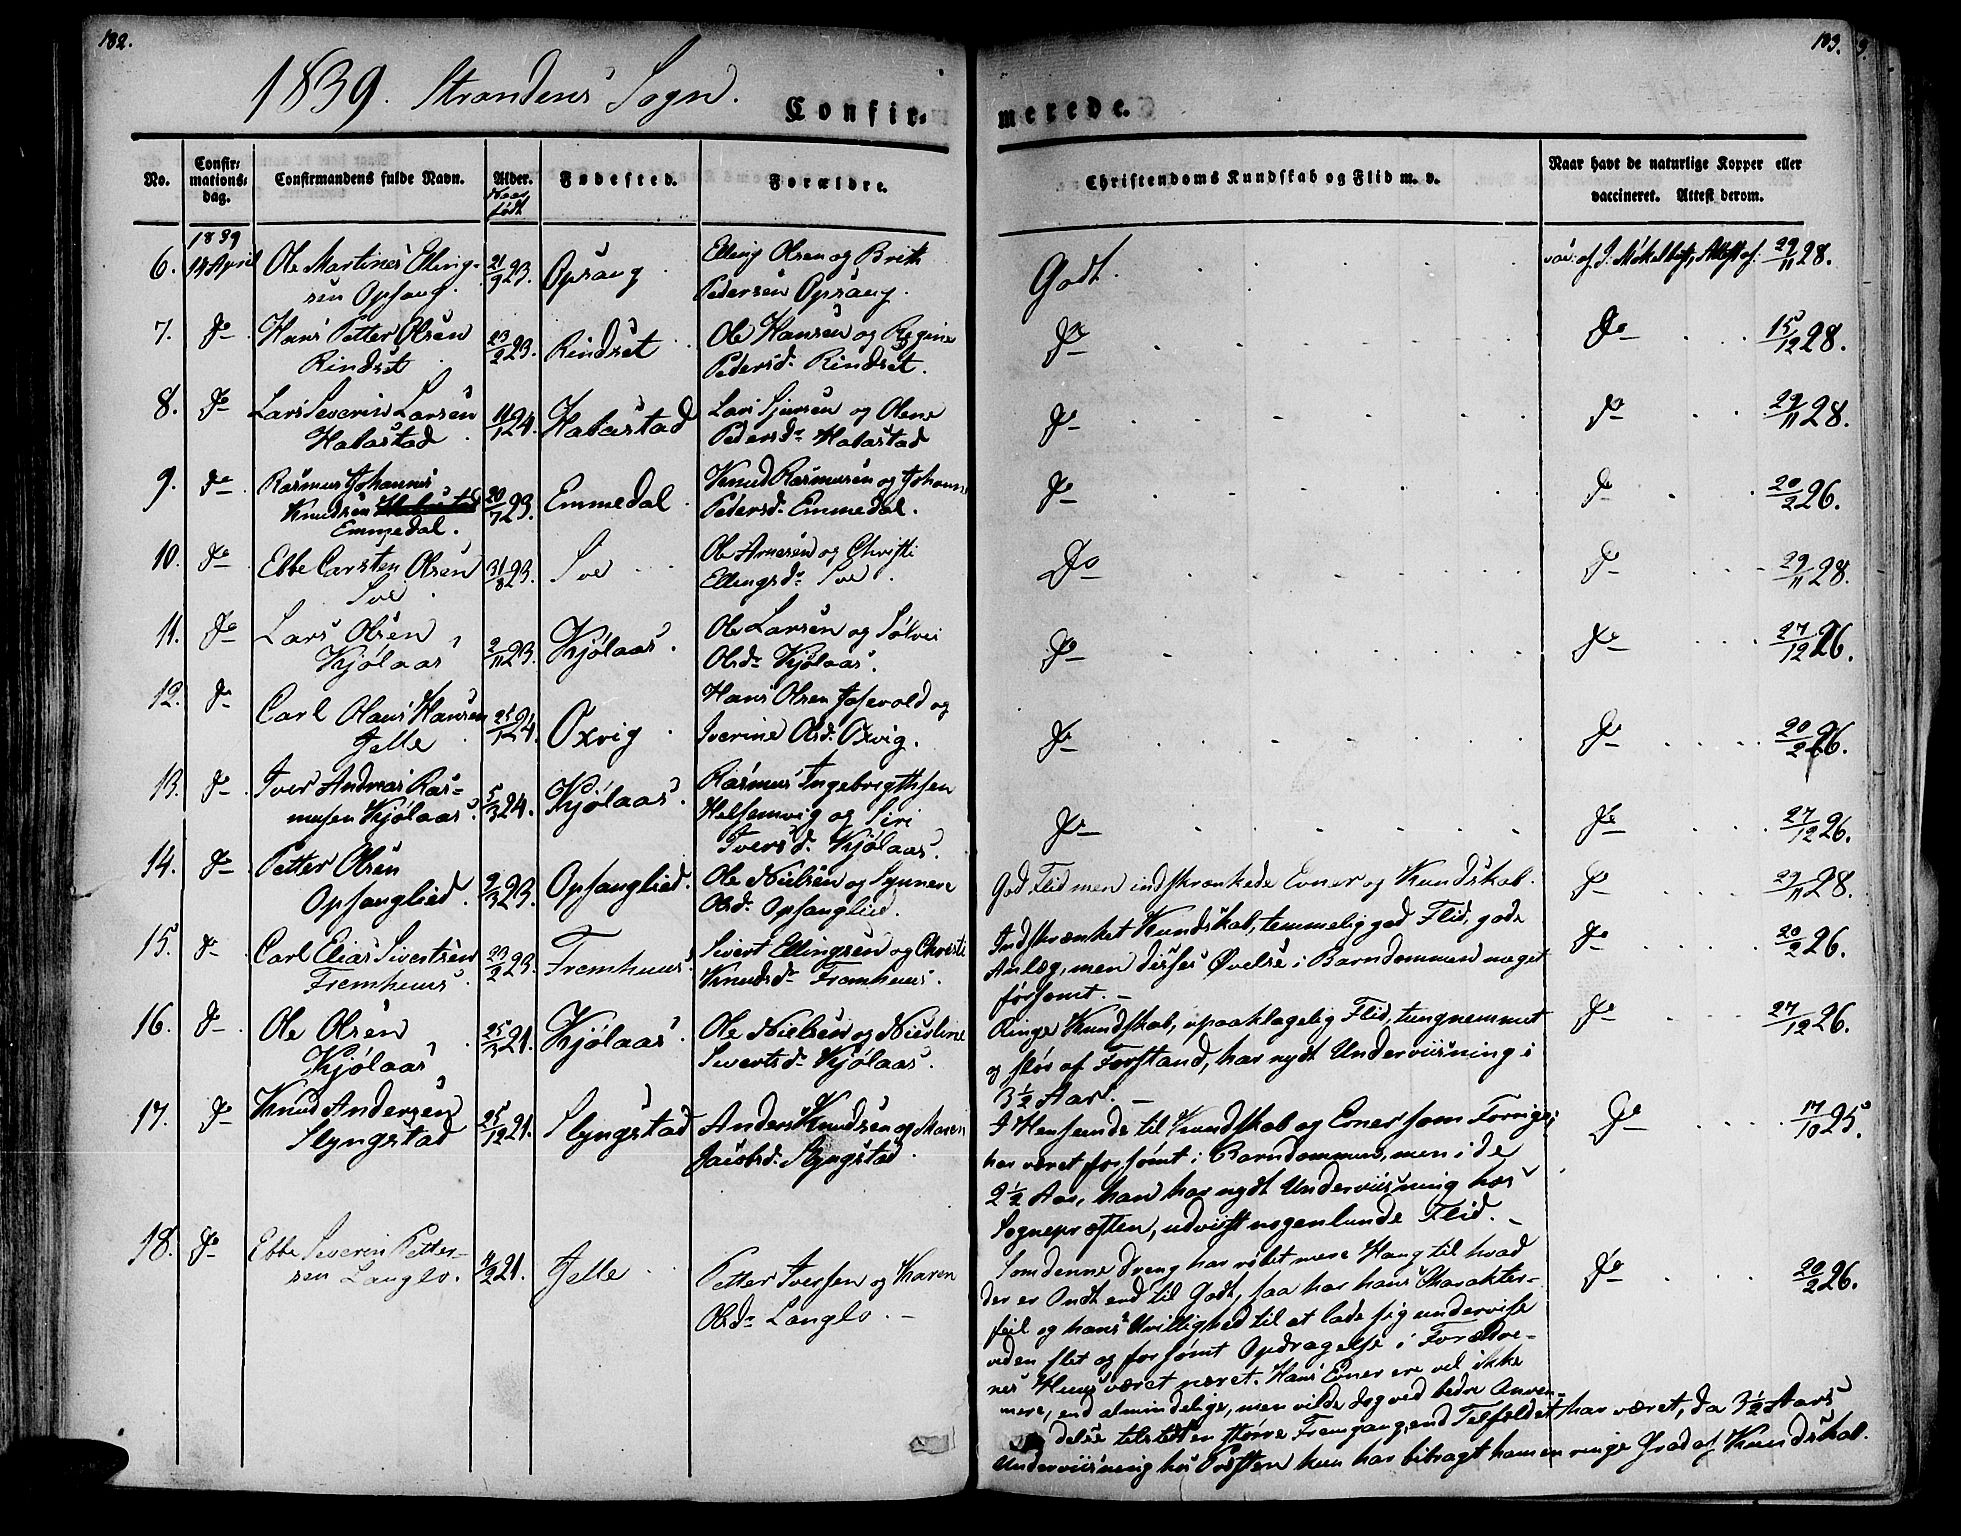 182.
1839. Strandens Sogn.
Confir-
No.
Confir-
mations-
dag.
Confirmandens fulde Navn.
Alder.
Naar
født
Fødested.
Forældre.
1839
6. 14 April Ole Martines Elling- 21/9 23. Opsang Elling Olsen og Brith
sen Opsang. Pedersen Opsang.
7. Do Hans Petter Olsen 23/2 23. Rindset Ole Hansen og Regine
Rindset Pedersd. Rindset.
8. Do Lars Severin Larsen 11/1 24. Habostad Lars Sjursen og Olene
Habostad Pedersdr Habostad
9. do Rasmus Johannes 20/7 23. Emmedal Knud Rasmusen og Johanne
Knudsen Pedersd. Emmedal.
Emmedal.
10. Do Ebbe Carsten Olsen 31/8 23. Sve Ole Arnesen og Christi
Sve Ellingsdr Sve.
11. Do Lars Olsen 2/11 23. Kjølaas. Ole Larsen og Sølvi
Kjølaas Olsdr Kjølaas.
12. do Carl Olaus Hansen 25/1 24. Oxvig Hans Olsen og
Jelle Iverine Olsd. Oxvig.
13. do Iver Andreas Ras- 5/3 24. Kjølaas. Rasmus Ingebrigthsen
musen Kjølaas og Siri
Iversd. Kjølaas.
14. Do Petter Olsen 9/3 23. Opsanglied. Ole Nielsen og Synneve
Opsanglied. Olsdr Opsanglied.
15. do Carl Elias Sivertsen 23/2 23. Fremhuus. Sivert Ellingsen og Christi
Fremhuus. Knudsdr Fremhuus.
16. Do Ole Olsen 25/3 21. Kjølaas. Ole Nielsen og Nicoline
Kjølaas Sivertsdr Kjølaas.
17. Do Knud Andersen 25/12 21. Slyngstad Anders Knudsen og Maren
Slyngstad Jacobsd. Slyngstad.
18. Do Ebbe Severin Petter- 4/2 21. Jelle Petter Iversen og Karen
sen Langlo. Olsdr Langlo. –
183.
merede.
Christendoms Kundskab og Flid m. v.
Naar havt de naturlige Kopper eller
vaccineret. Attest derom.
Godt. vac. af J. Møkelbust, Attest af 29/11 28.
Do Do 15/12 28.
Do Do 29/11 28.
Do Do 20/2 26.
Do Do 29/11 28.
Do Do 27/12 26.
Do Do 20/2 26.
Do Do 27/12 26.
God Flid men indskrænkede Evner og Kundskab. Do 29/11 28.
Indskrænket Kundskab, temmelig god Flid, gode Do 20/2 26.
Anlæg, men disses Øvelse i Barndommen meget
forsømt. –
Ringe Kundskab, upaaklagelig Flid, tungnemmet Do 27/12 26.
og sløv af Forstand, har nydt Underviisning i
3½ Aar. –
I Henseende til Kundskab og Evner som Forrige; Do 17/10 25.
har været forsømt i Barndommen, men i de
2½ Aar, han har nydt Underviisning hos
Sognepræsten, udviist nogenlunde Flid. –
Som denne Dreng har røbet mere Hang til hvad Do 20/2 26.
der er Ondt end til Godt, saa har hans Charakter-
feil og hans Uvillighed til at lade sig undervise
ved en slet og forsømt Opdragelse i Forældre-
nes Huus været næret. Hans Evner ere vel ikke
mere, end almindelige, men vilde dog ved bedre Anven-
delse tilstedt en større Fremgang, end Tilfældet har været, da 3½ Aars
Underviisning hos Præsten kun har bibragt ham en ringe Grad af Kundskab.